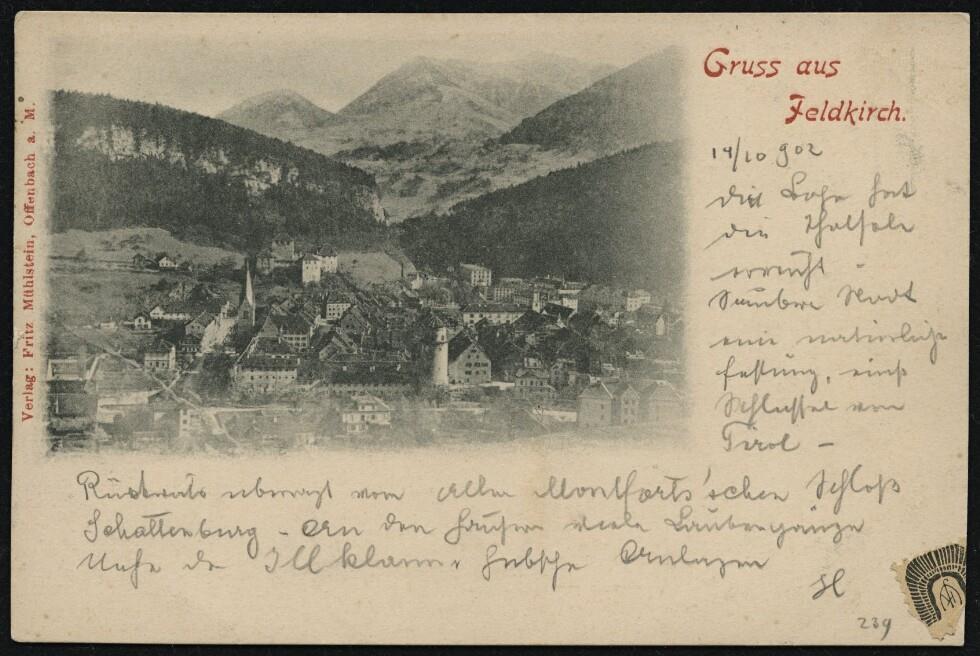 Gruss aus
Feldkirch.
14/10 902
die Bahn hat
die Thalsole
erreicht -
Saubere Stadt
eine natürliche
Festung, einst
Schlüssel von
Tirol -
überragt vom alten Montfort'schen Schloß
Schattenburg - An den Häusern viele Laubengänge
Nahe die Illklamm, hübsche Anlagen
239
Verlag: Fritz Mühlstein, Offenbach a. M.